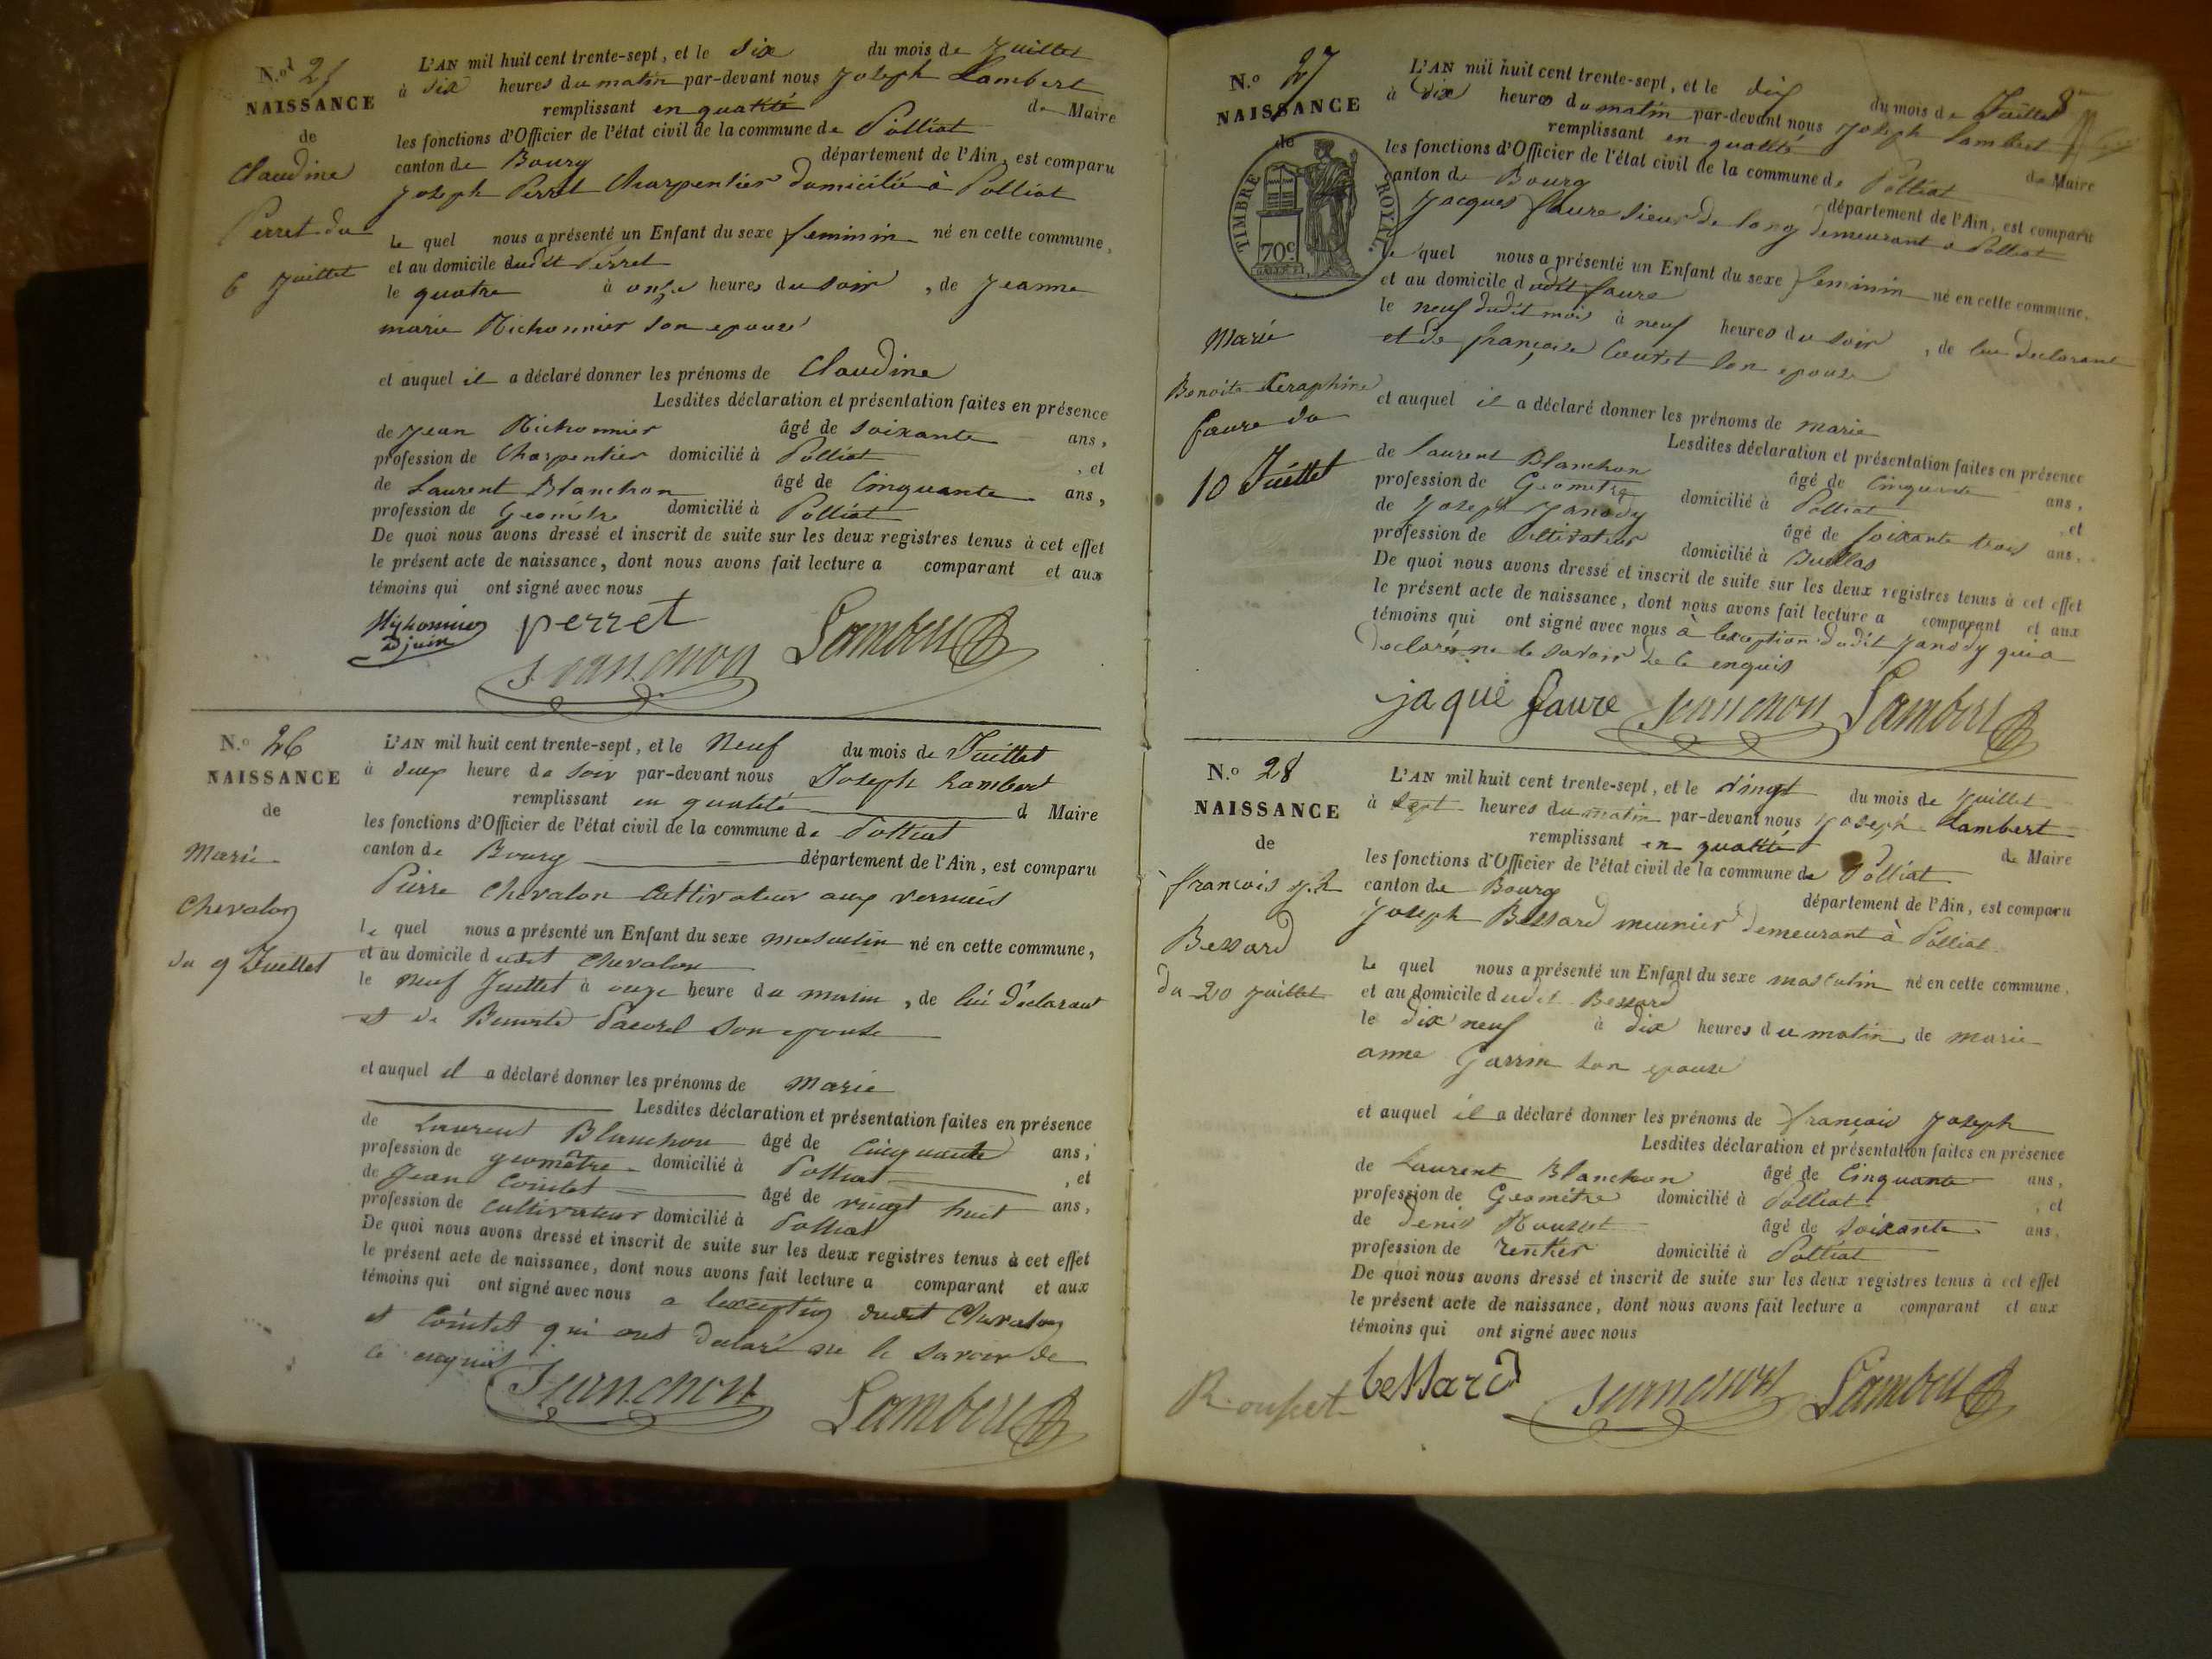 N.º 25
NAISSANCE
de
Claudine
Perret du
6 Juillet
L'AN mil huit cent trente-sept, et le six du mois de Juillet
à six heures du matin par-devant nous Joseph Lambert
remplissant en qualité de Maire
les fonctions d'Officier de l'état civil de la commune de Polliat
canton de Bourg département de l'Ain, est comparu
Joseph Perret Charpentier domicilié à Polliat
le quel nous a présenté un Enfant du sexe feminin né en cette commune,
et au domicile dudit Perret
le quatre à onze heures du soir, de Jeanne
marie Michonnier son epouse
et auquel il a déclaré donner les prénoms de Claudine
Lesdites déclaration et présentation faites en présence
de Jean Michonnier âgé de soixante ans,
profession de Charpentier domicilié à Polliat, et
de Laurent Blanchon âgé de Cinquante ans,
profession de Geométre domicilié à Polliat
De quoi nous avons dressé et inscrit de suite sur les deux registres tenus à cet effet
le présent acte de naissance, dont nous avons fait lecture a comparant et aux
témoins qui ont signé avec nous
perret
Lambert
N.º 26
NAISSANCE
de
Marie
Chevalon
du 9 Juillet
L'AN mil huit cent trente-sept, et le Neuf du mois de Juillet
à deux heure de soir par-devant nous Joseph Lambert
remplissant en qualité d Maire
les fonctions d'Officier de l'état civil de la commune de Polliat
canton de Bourg département de l'Ain, est comparu
Pierre Chevalon Cultivateur aux
le quel nous a présenté un Enfant du sexe masculin né en cette commune,
et au domicile dudit Chevalon
le Neuf Juillet à onze heure du matin, de lui déclarant
et de Benoite son epouse
et auquel il a déclaré donner les prénoms de Marie
Lesdites déclaration et présentation faites en présence
de Laurent Blanchon âgé de Cinquante ans,
profession de geomêtre domicilié à Polliat, et
de Jean Cointet âgé de vingt huit ans,
profession de Cultivateur domicilié à Polliat
De quoi nous avons dressé et inscrit de suite sur les deux registres tenus à cet effet
le présent acte de naissance, dont nous avons fait lecture a comparant et aux
témoins qui ont signé avec nous a lexception dudit Chevalon
et Cointet qui ont declaré ne le savoir de
ce enquis
Lambert
8
N.º 27
NAISSANCE
de
TIMBRE ROYAL.
70c.
Marie
Benoite Seraphine
faure du
10 Juillet
L'AN mil huit cent trente-sept, et le dix du mois de Juillet
à dix heures du matin par-devant nous Joseph Lambert
remplissant en qualité de Maire
les fonctions d'Officier de l'état civil de la commune de Polliat
canton de Bourg département de l'Ain, est comparu
Jacques faure sieur de long demeurant à Polliat
le quel nous a présenté un Enfant du sexe feminin né en cette commune,
et au domicile dudit faure
le neuf dudit mois à neuf heures du soir, de lui declarant
et de françoise Coutet son epouse
et auquel il a déclaré donner les prénoms de marie
Lesdites déclaration et présentation faites en présence
de Laurent Blanchon âgé de Cinquante ans,
profession de Geométre domicilié à Polliat, et
de Joseph Janody âgé de soixante trois ans,
profession de Cultivateur domicilié à Buellas
De quoi nous avons dressé et inscrit de suite sur les deux registres tenus à cet effet
le présent acte de naissance, dont nous avons fait lecture a comparant et aux
témoins qui ont signé avec nous à lexception dudit Janody qui a
declaré ne le savoir de ce enquis
jaque faure Lambert
N.º 28
NAISSANCE
de
françois j.h
Bessard
du 20 Juillet
L'AN mil huit cent trente-sept, et le vingt du mois de Juillet
à sept heures du matin par-devant nous Joseph Lambert
remplissant en qualité de Maire
les fonctions d'Officier de l'état civil de la commune de Polliat
canton de Bourg département de l'Ain, est comparu
Joseph Bessard meunier demeurant à Polliat
le quel nous a présenté un Enfant du sexe masculin né en cette commune,
et au domicile dudit Bessard
le dix neuf à dix heures du matin, de marie
anne son epouse
et auquel il a déclaré donner les prénoms de françois Joseph
Lesdites déclaration et présentation faites en présence
de Laurent Blanchon âgé de Cinquante ans,
profession de Geométre domicilié à Polliat, et
de Denis Rousset âgé de soixante ans,
profession de rentier domicilié à Polliat
De quoi nous avons dressé et inscrit de suite sur les deux registres tenus à cet effet
le présent acte de naissance, dont nous avons fait lecture a comparant et aux
témoins qui ont signé avec nous
beSSard Lambert